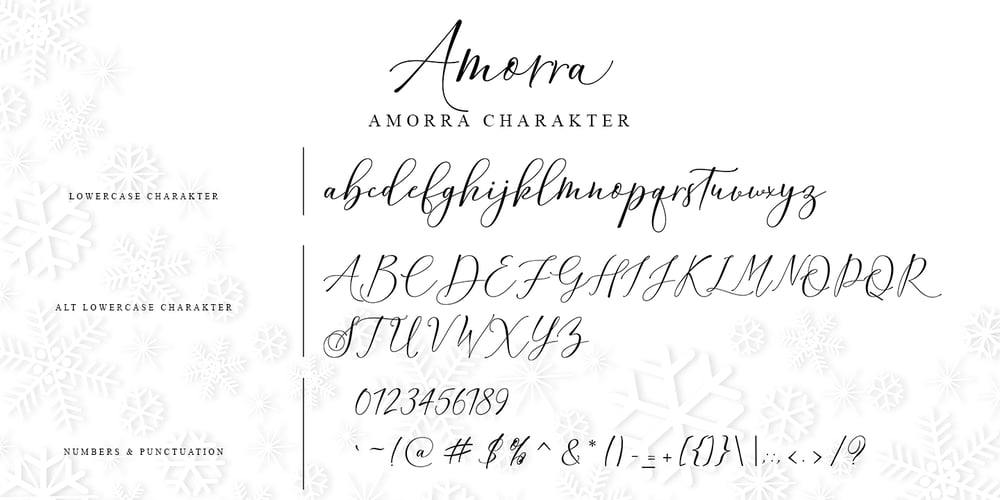 Amorra
AMORRA CHARAKTER
LOWERCASE CHARAKTER
abcdefghijklmnopqrstuvwxyz
ALT LOWERCASE CHARAKTER
ABCDEFGHIJKLMNOPQR
STUVWXYZ
0123456789
NUMBERS & PUNCTUATION
`~!@#$%^&*()-=+[{]}\|;:,<.>/?